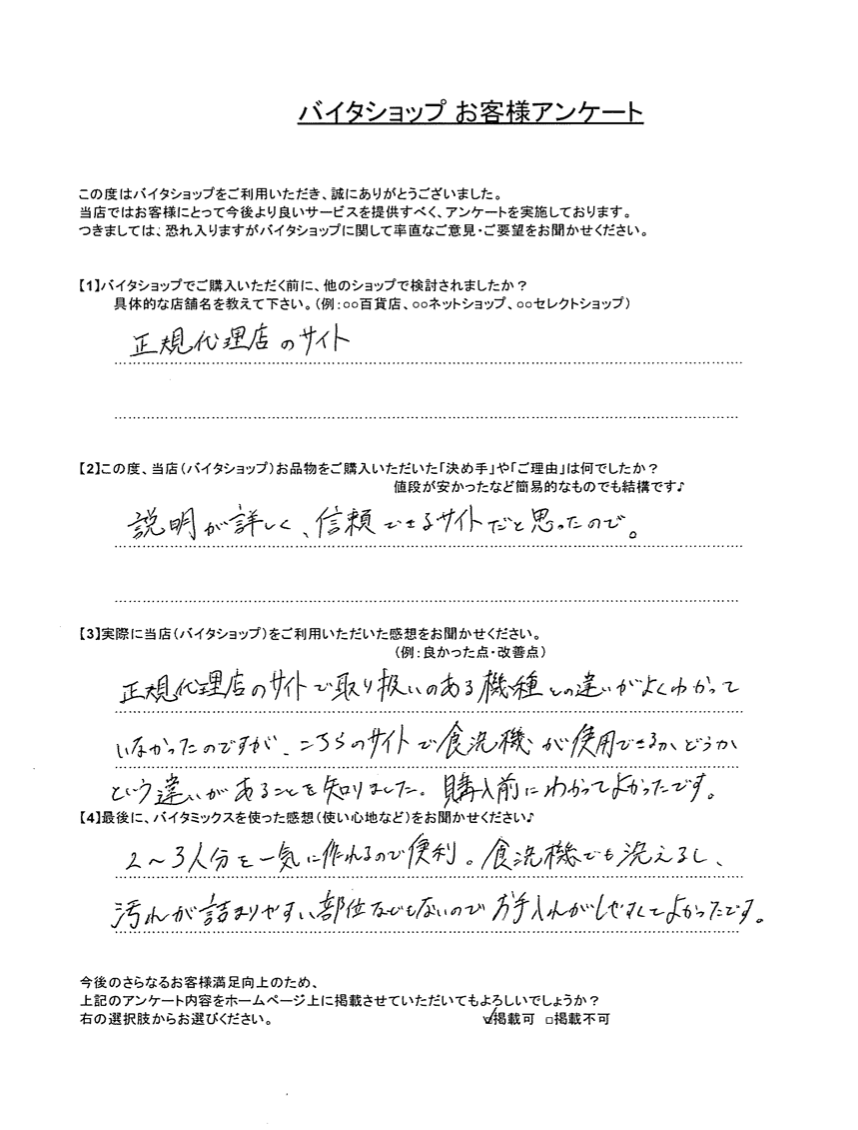 バイタショップ お客様アンケート
この度はバイタショップをご利用いただき、誠にありがとうございました。
当店ではお客様にとって今後より良いサービスを提供すべく、アンケートを実施しております。
つきましては、恐れ入りますがバイタショップに関して率直なご意見・ご要望をお聞かせください。
【1】バイタショップでご購入いただく前に、他のショップで検討されましたか？
具体的な店舗名を教えて下さい。（例：○○百貨店、○○ネットショップ、○○セレクトショップ）
正規代理店のサイト
【2】この度、当店（バイタショップ）お品物をご購入いただいた「決め手」や「ご理由」は何でしたか？
値段が安かったなど簡易的なものでも結構です♪
説明が詳しく、信頼できるサイトだと思ったので。
【3】実際に当店（バイタショップ）をご利用いただいた感想をお聞かせください。
（例：良かった点・改善点）
正規代理店のサイトで取り扱いのある機種との違いがよくわかって
いなかったのですが、こちらのサイトで食洗機が使用できるか、どうか
という違いがあることを知りました。購入前にわかってよかったです。
【4】最後に、バイタミックスを使った感想（使い心地など）をお聞かせください♪
2～3人分を一気に作れるので便利。食洗機でも洗えるし、
汚れが詰まりやすい部位などもないのでお手入れがしやすくてよかったです。
今後のさらなるお客様満足向上のため、
上記のアンケート内容をホームページ上に掲載させていただいてもよろしいでしょうか？
右の選択肢からお選びください。 ☑掲載可 □掲載不可